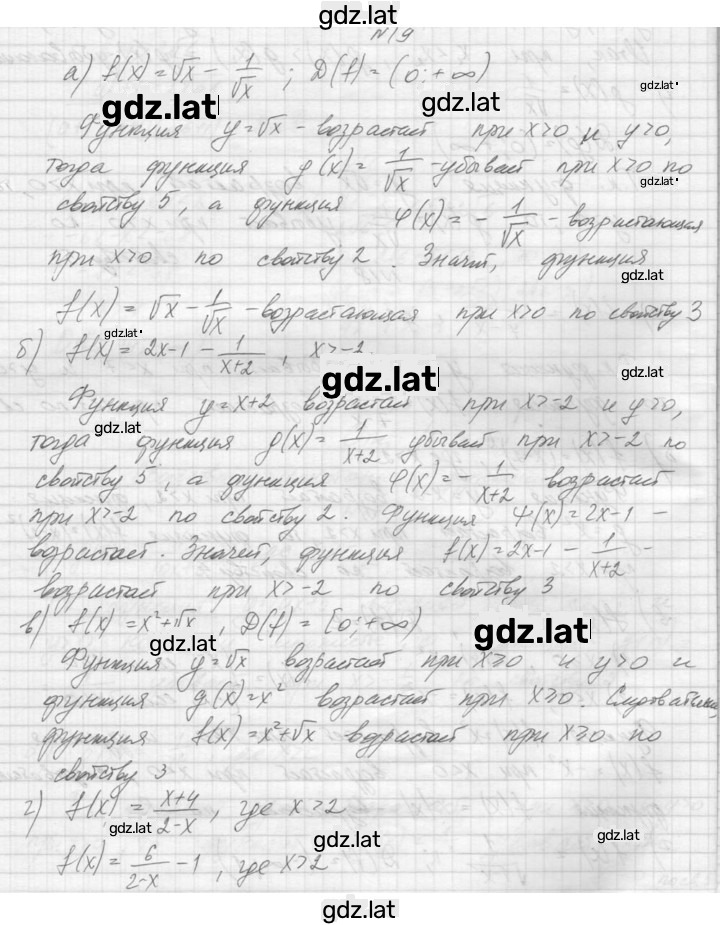 gdz.lat
№19
а) f(x) = √x − 1/√x ; D(f) = (0; +∞)
gdz.lat
gdz.lat
gdz.lat
Функция y = √x - возрастает при x>0 и y>0,
тогда функция g(x) = 1/√x - убывает при x>0 по
gdz.lat
свойству 5, а функция φ(x) = − 1/√x - возрастающая
при x>0 по свойству 2. Значит, функция
gdz.lat
f(x) = √x − 1/√x - возрастающая при x>0 по свойству 3
gdz.lat
б) f(x) = 2x-1 − 1/(x+2) , x>-2.
gdz.lat
gdz.lat
Функция y = x+2 возрастает при x>-2 и y>0,
gdz.lat
тогда функция g(x) = 1/(x+2) убывает при x>-2 по
свойству 5, а функция φ(x) = − 1/(x+2) возрастает
при x>-2 по свойству 2. Функция Ψ(x) = 2x-1 -
возрастает. Значит, функция f(x) = 2x-1 − 1/(x+2) -
возрастает при x>-2 по свойству 3
в) f(x) = x² + √x , D(f) = [0; +∞)
gdz.lat
gdz.lat
Функция y = √x возрастает при x≥0 и y>0 и
функция g(x) = x² возрастает при x≥0. Следовательно,
функция f(x) = x² + √x возрастает при x≥0 по
свойству 3
г) f(x) = (x+4)/(2-x) , где x>2
gdz.lat
gdz.lat
gdz.lat
f(x) = 6/(2-x) − 1 , где x>2
gdz.lat